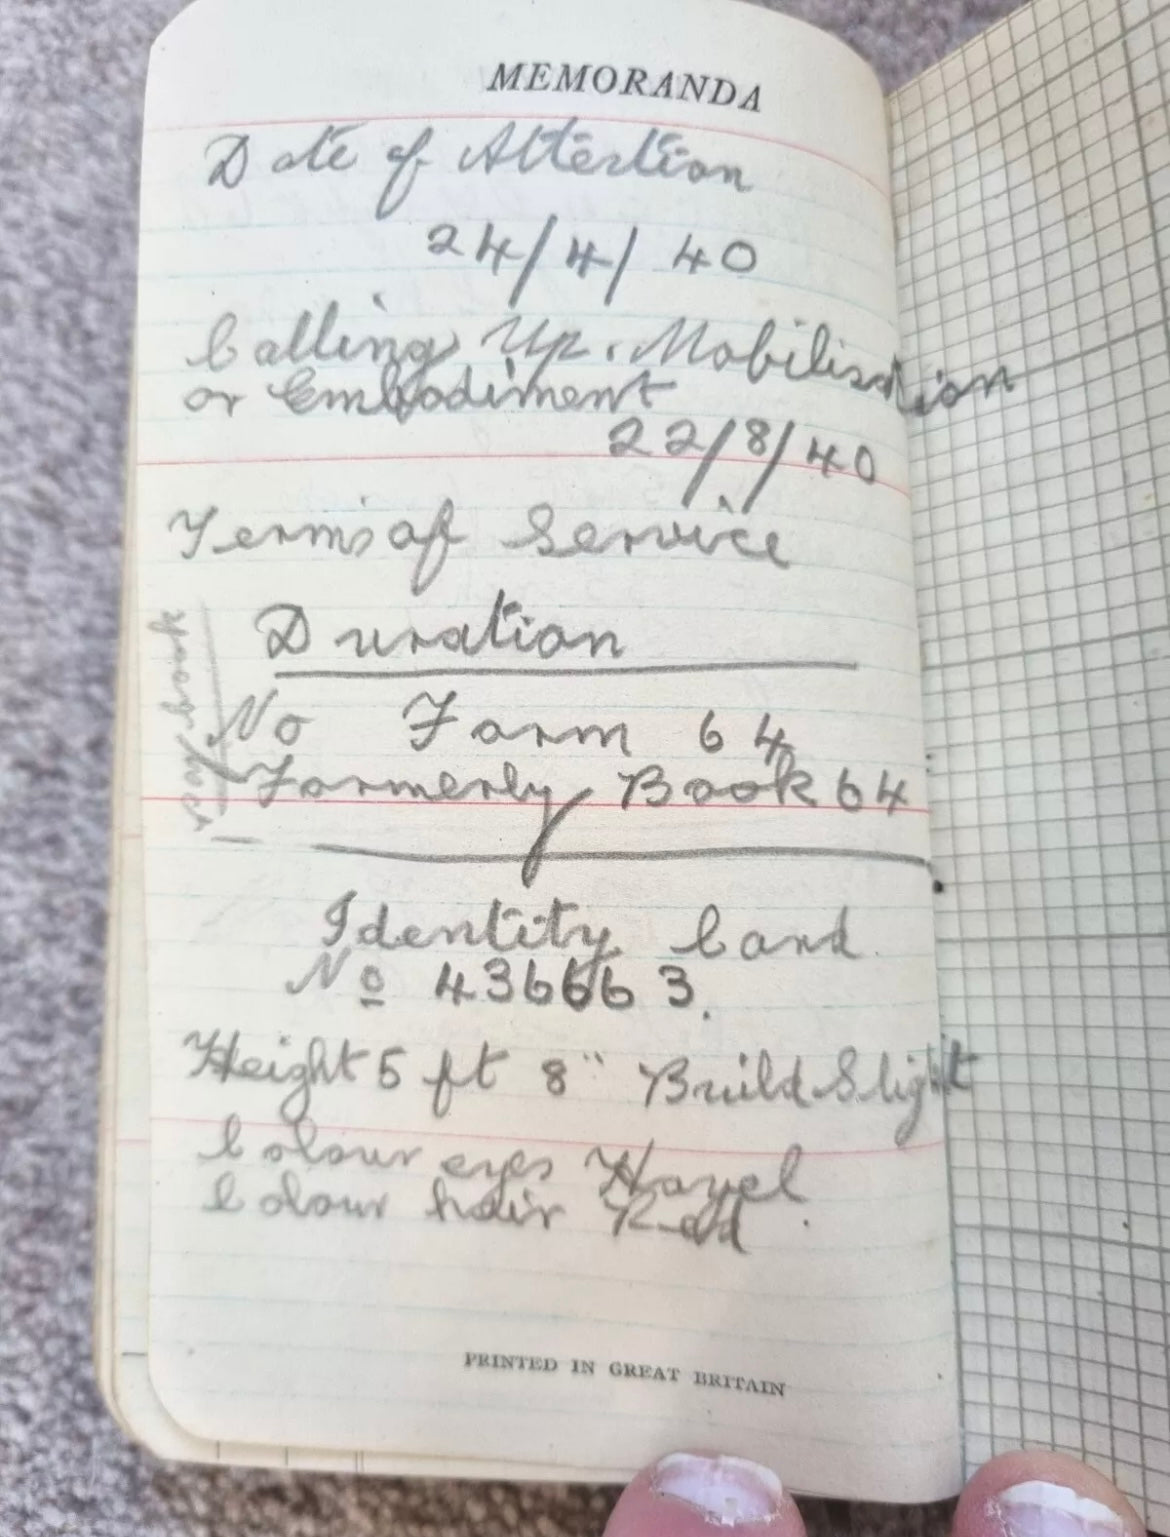 MEMORANDA
Date of Attestion
24/4/40
Calling Up. Mobilisation
or Embodiment
22/8/40
Terms of Service
Duration
No Form 64
Formerly Book 64
Identity Card.
No 436663.
Height 5 ft 8" Build Slight
Colour eyes Hazel
Colour hair Red.
PRINTED IN GREAT BRITAIN